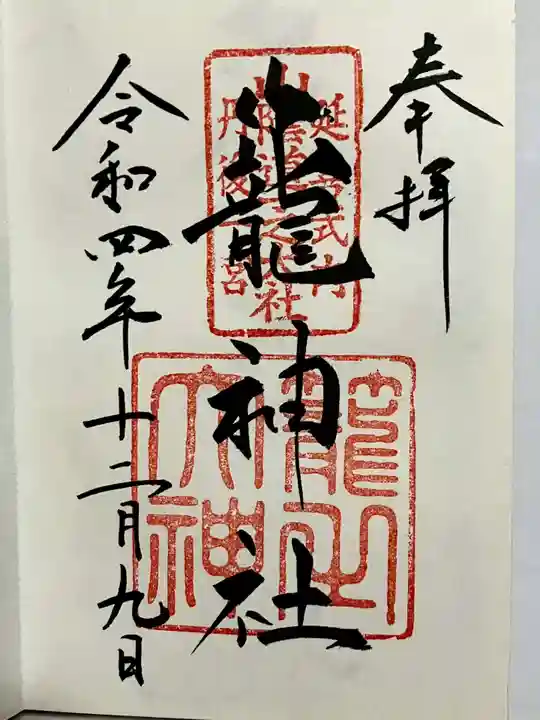 奉拝
延喜式内
丹後一宮
籠神社
籠之大神
令和四年十二月九日